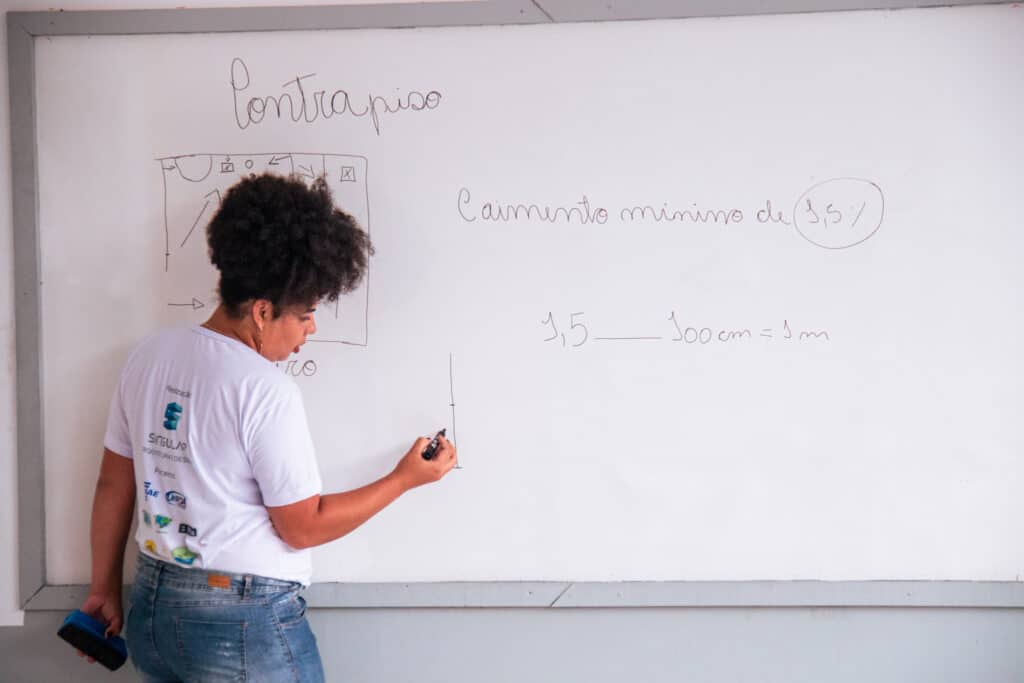 Contrapiso
Caimento mínimo de 1,5%
1,5 —— 100 cm = 1 m
Realização
SINGULAR